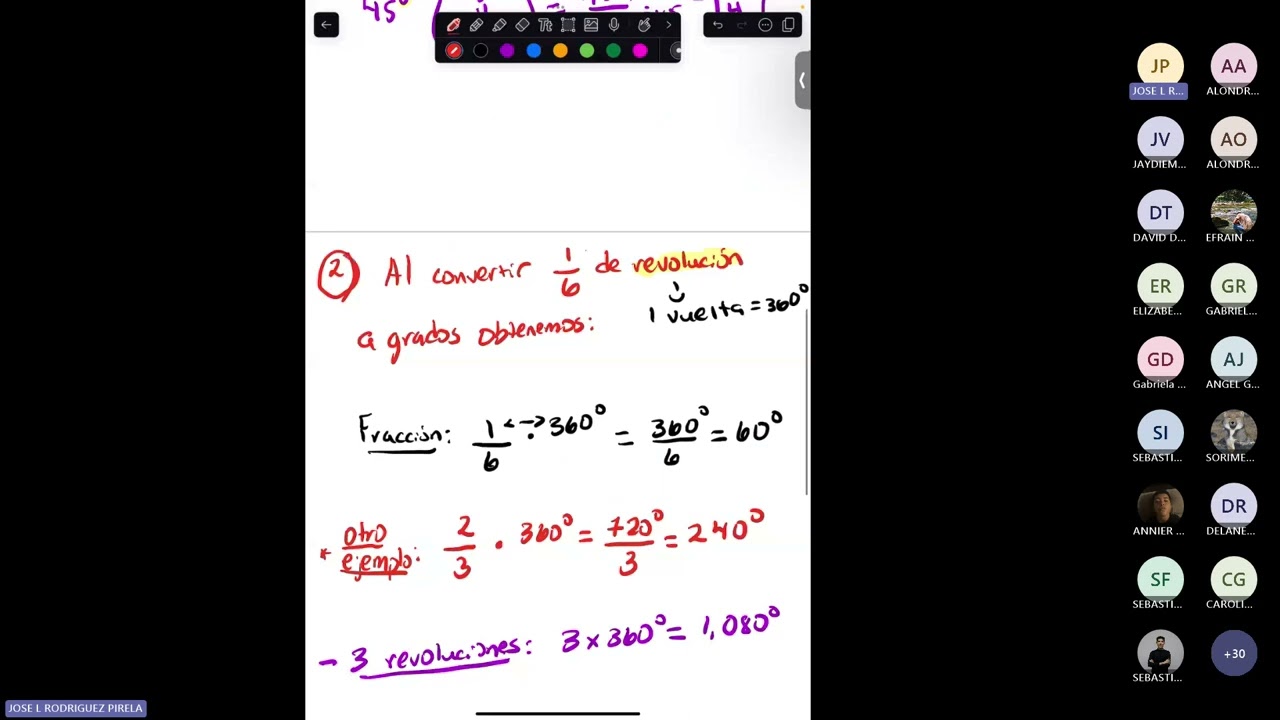 45°
Tt
2 Al convertir 1/6 de revolución
1 vuelta = 360°
a grados obtenemos:
Fracción: 1/6 · 360° = 360°/6 = 60°
* Otro ejemplo: 2/3 · 360° = 720°/3 = 240°
- 3 revoluciones: 3 x 360° = 1,080°
JP
JOSE L R...
AA
ALONDR...
JV
JAYDIEM...
AO
ALONDR...
DT
DAVID D...
EFRAIN ...
ER
ELIZABE...
GR
GABRIEL...
GD
Gabriela ...
AJ
ANGEL G...
SI
SEBASTI...
SORIME...
ANNIER ...
DR
DELANE...
SF
SEBASTI...
CG
CAROLI...
SEBASTI...
+30
JOSE L RODRIGUEZ PIRELA